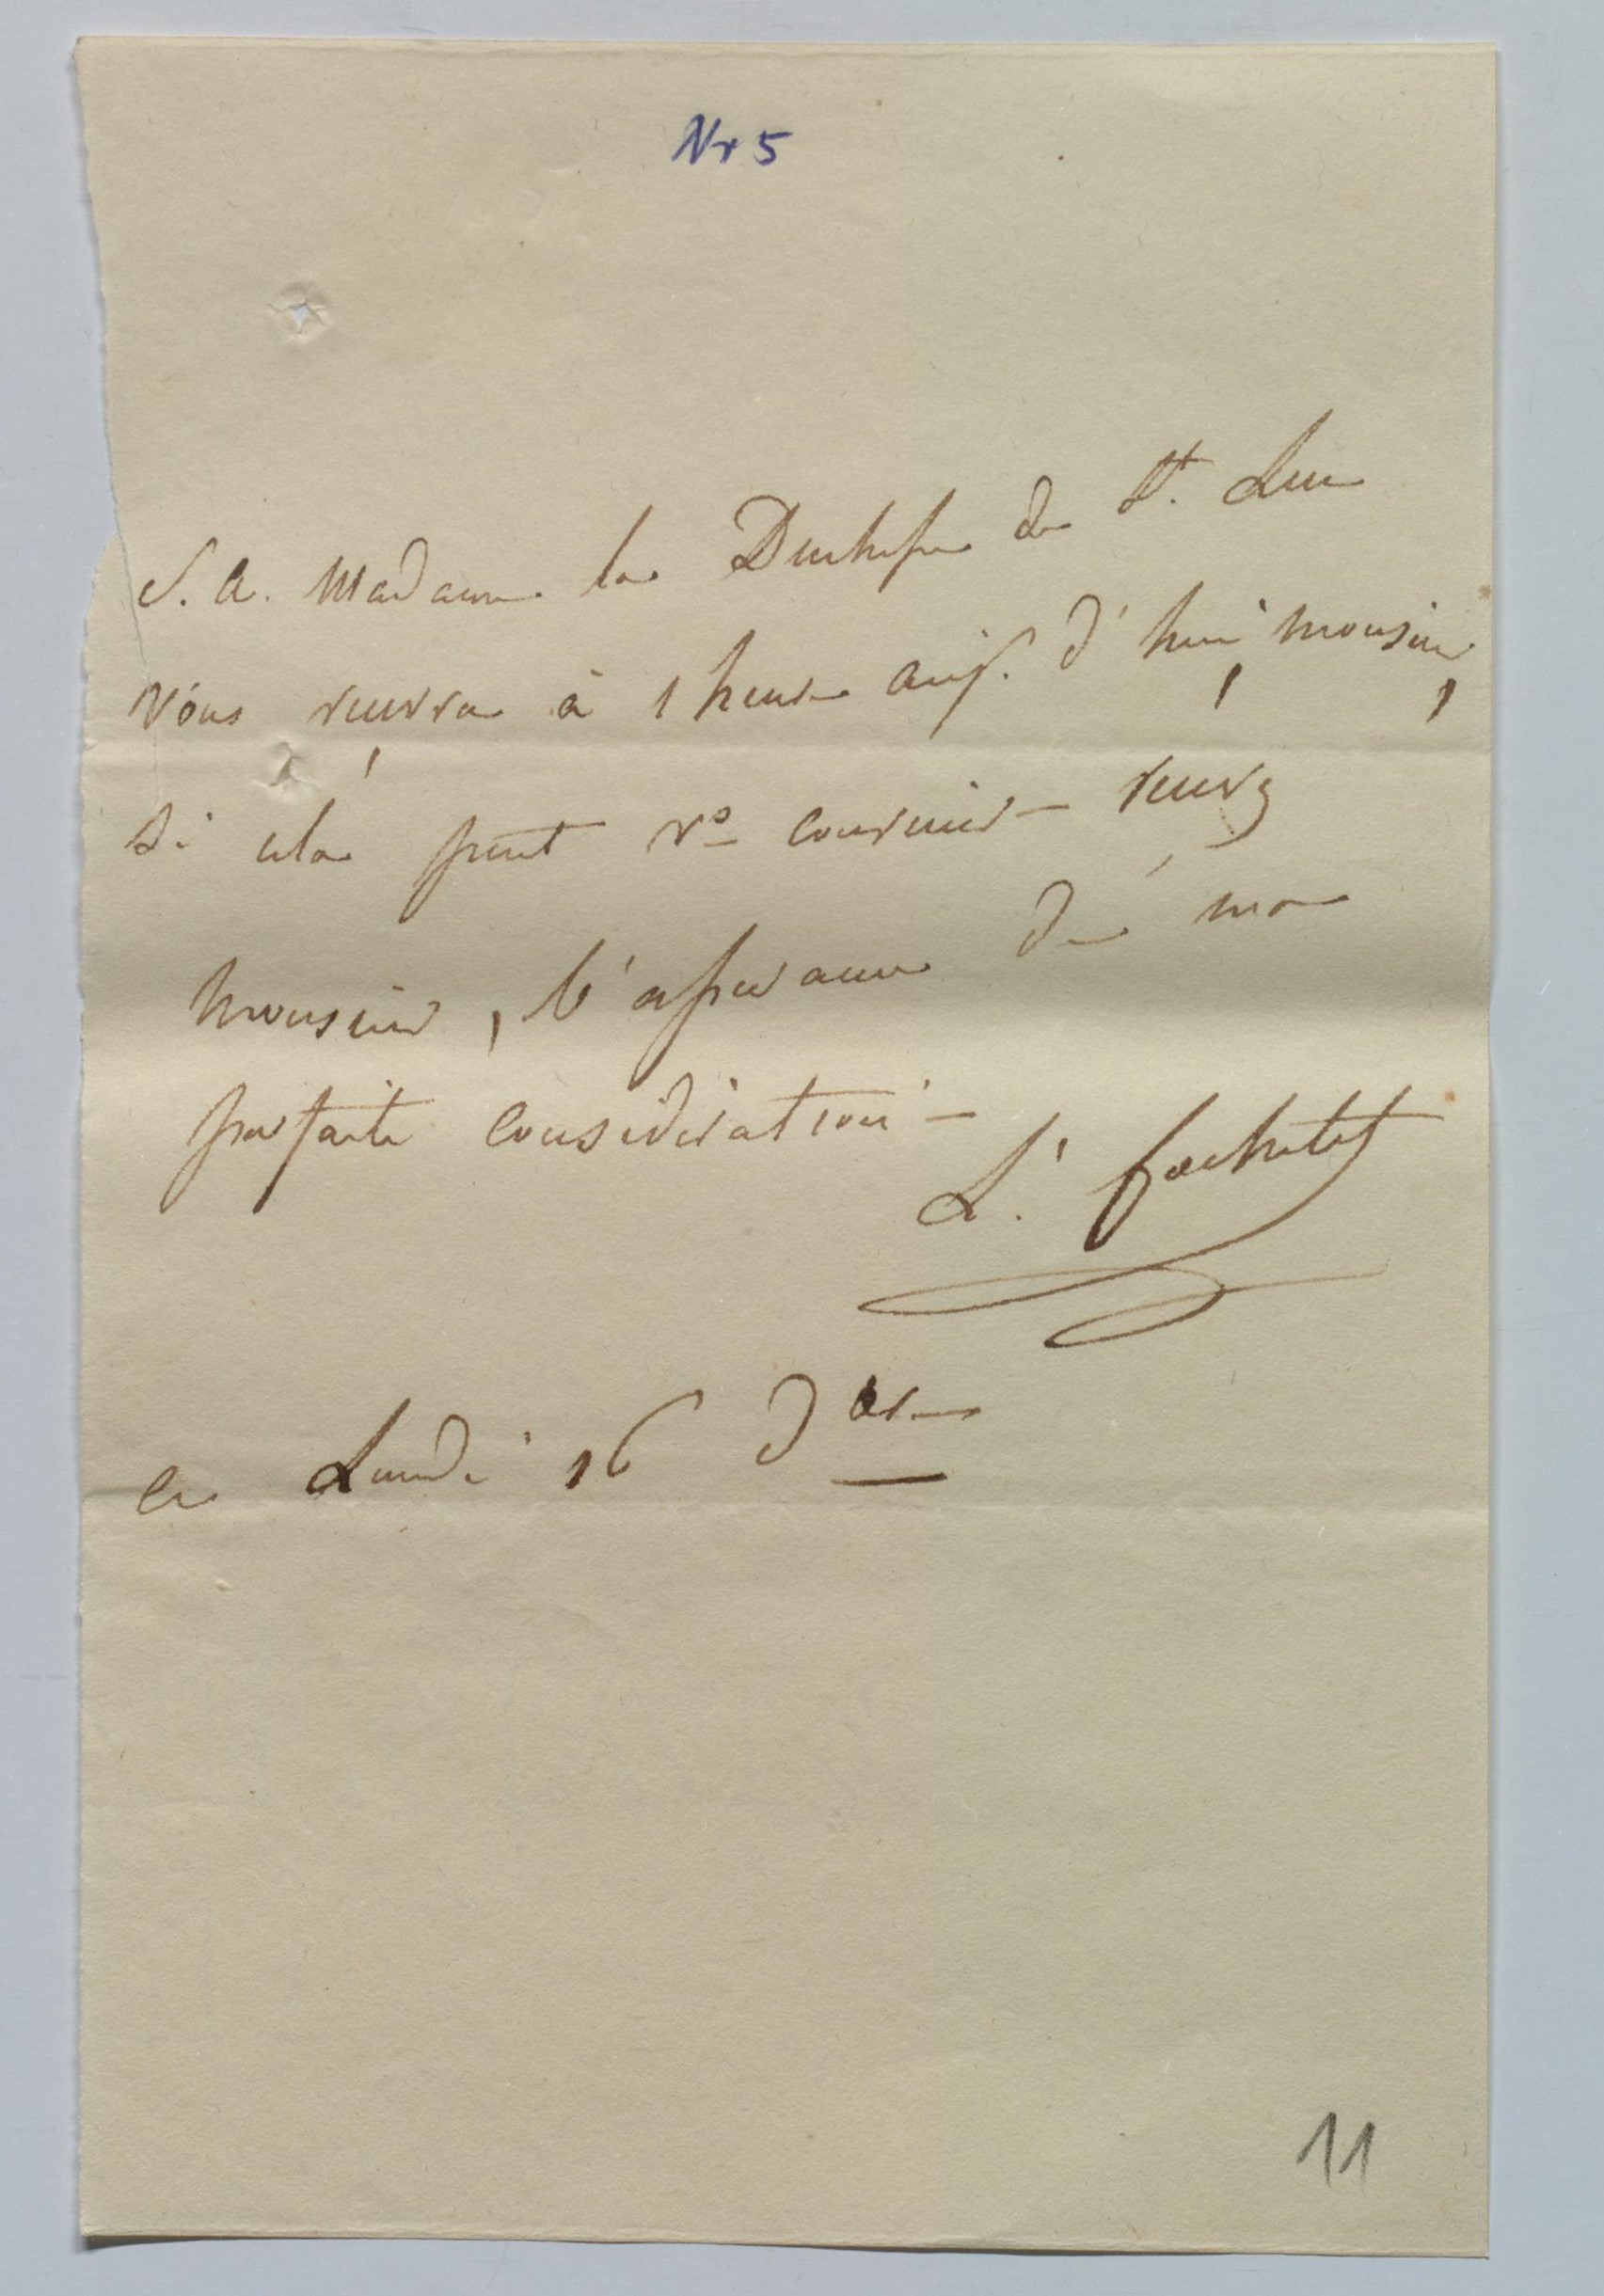 Nr 5
S. A. Madame la Duchesse de St. Leu
vous recevra à 1 heure auj. d'hui, monsieur,
si cela peut vs convenir – recevez,
monsieur, l'assurance de ma
parfaite considération –
L.
ce Lundi 16 Xbre
11